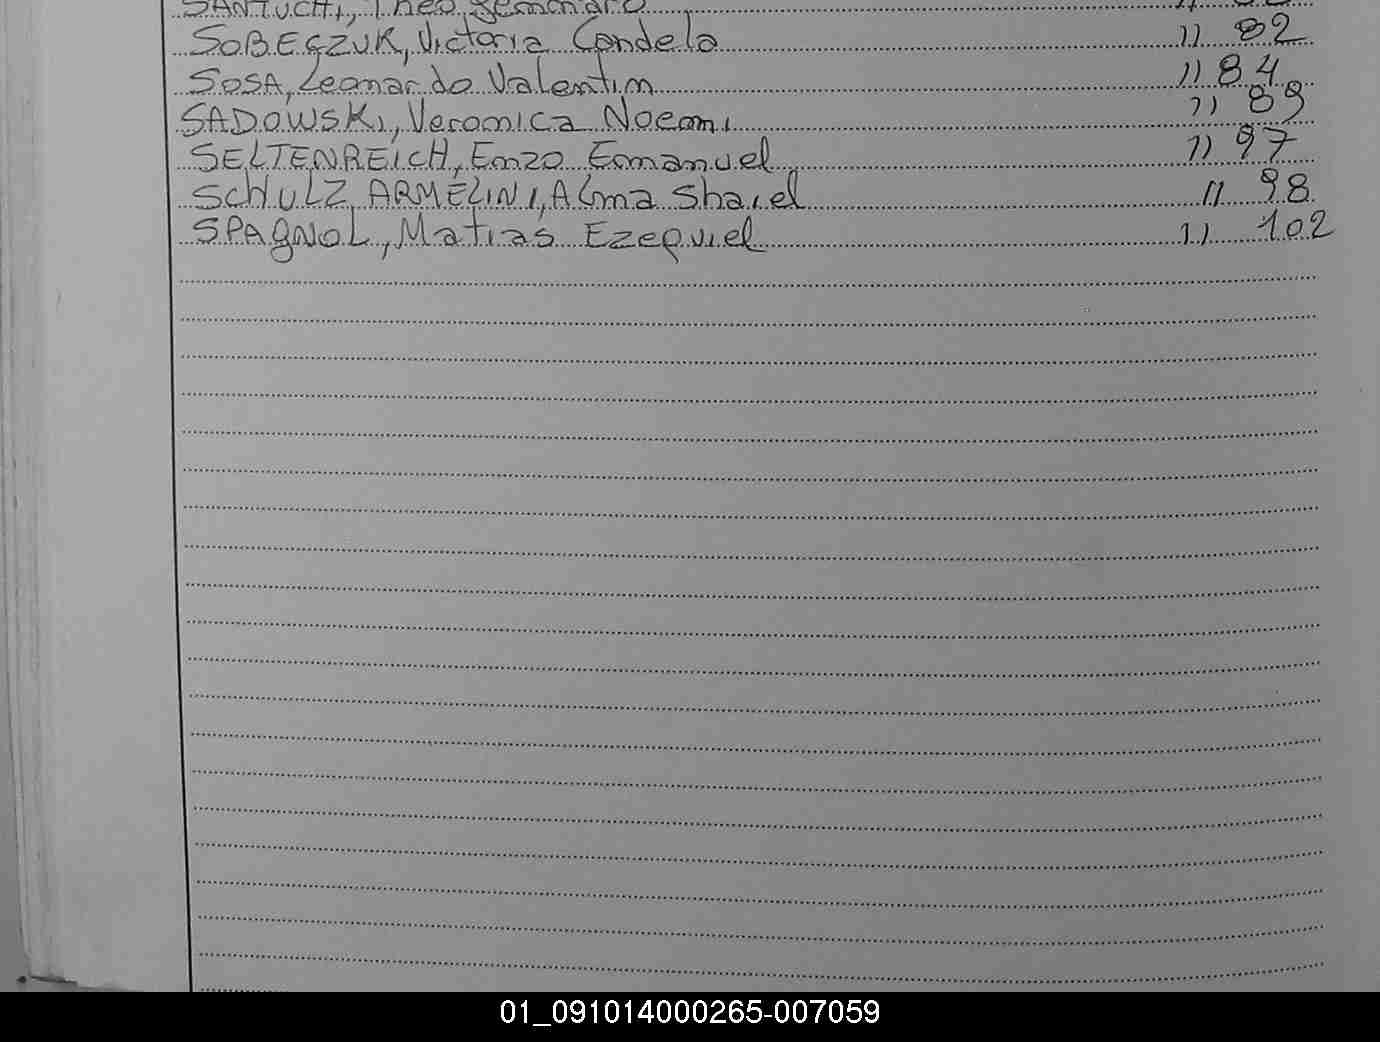 SANTUCHI, Theo Jemonaro
SOBECZUK, Victoria Candela 11 82
SOSA, Leonardo Valentin 11 84
SADOWSKI, Veronica Noemi 11 89
SELTENREICH, Enzo Emanuel 11 97
SCHULZ ARMELINI, Alma Shaiel 11 98
SPAGNOL, Matias Ezequiel 11 102
01_091014000265-007059